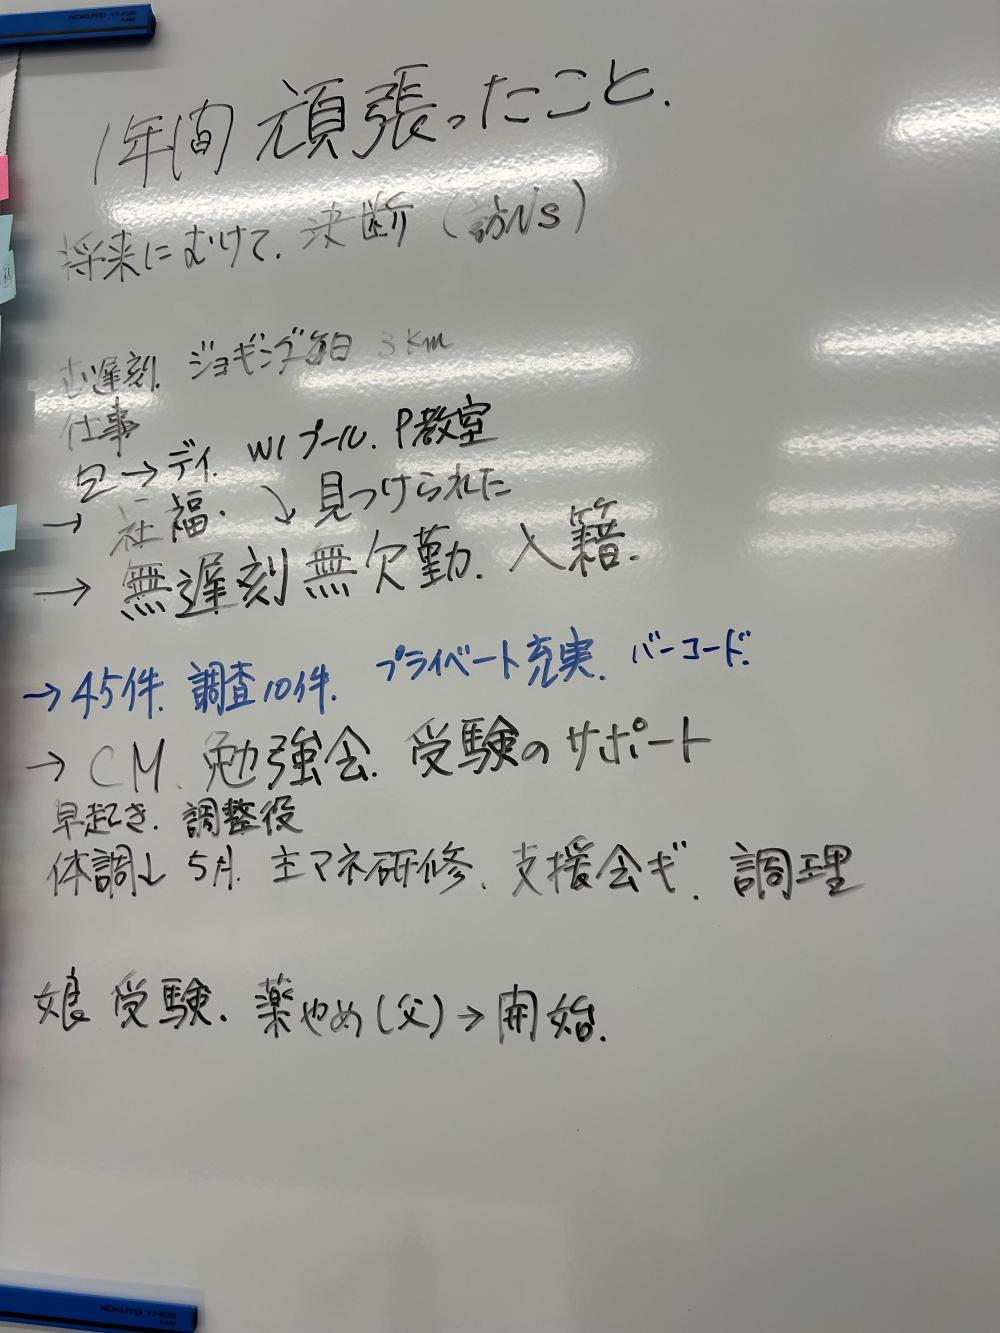 KOKUYO
1年間 頑張ったこと.
将来にむけて. 決断 (訪NS)
む遅刻. ジョギング毎日 3km
仕事
→ デイ. WIプール. P教室
→ 社福. ↓ 見つけられた
→ 無遅刻無欠勤. 入籍.
→ 45件. 調査10件. プライベート充実. バーコード.
→ CM. 勉強会. 受験のサポート
早起き. 調整役
体調↓ 5月. 主マネ研修. 支援会ギ. 調理
娘 受験. 薬やめ(父)→開始.
KOKUYO